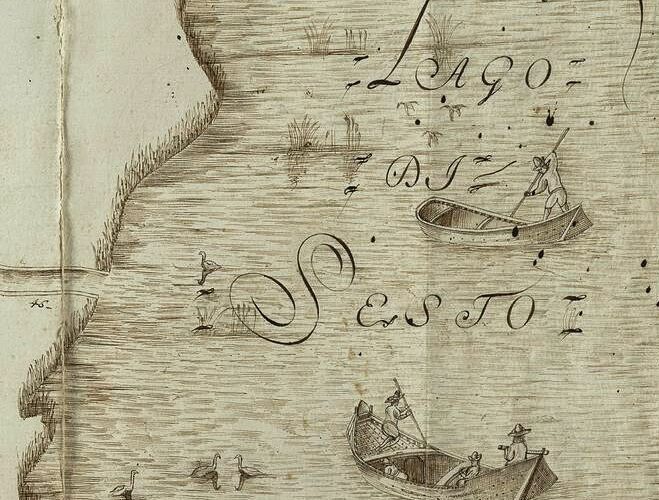 LAGO
DI
SESTO
46